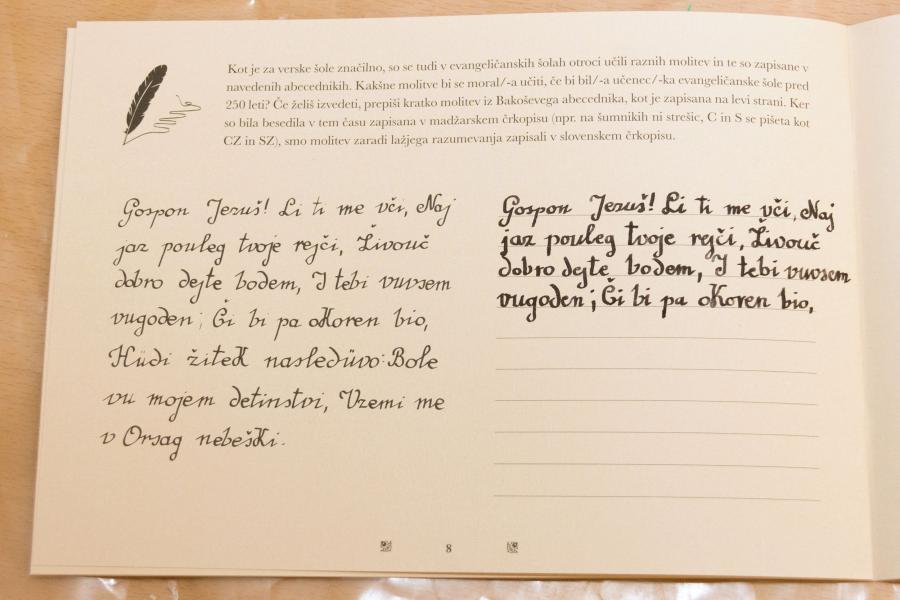 Kot je za verske šole značilno, so se tudi v evangeličanskih šolah otroci učili raznih molitev in te so zapisane v
navedenih abecednikih. Kakšne molitve bi se moral/-a učiti, če bi bil/-a učenec/-ka evangeličanske šole pred
250 leti? Če želiš izvedeti, prepiši kratko molitev iz Bakoševega abecednika, kot je zapisana na levi strani. Ker
so bila besedila v tem času zapisana v madžarskem črkopisu (npr. na šumnikih ni strešic, C in S se pišeta kot
CZ in SZ), smo molitev zaradi lažjega razumevanja zapisali v slovenskem črkopisu.
Gospon Jezuš! Li ti me vči, Naj
jaz pouleg tvoje rejči, Živouč
dobro dejte bodem, I tebi vuvsem
vugoden; Či bi pa oKoren bio,
Hüdi žiteK nasledüvo: Bole
vu mojem detinstvi, Vzemi me
v Orsag nebešKi.
Gospon Jezuš! Li ti me vči, Naj
jaz pouleg tvoje rejči, Živouč
dobro dejte bodem, I tebi vuvsem
vugoden; Či bi pa oKoren bio,
8